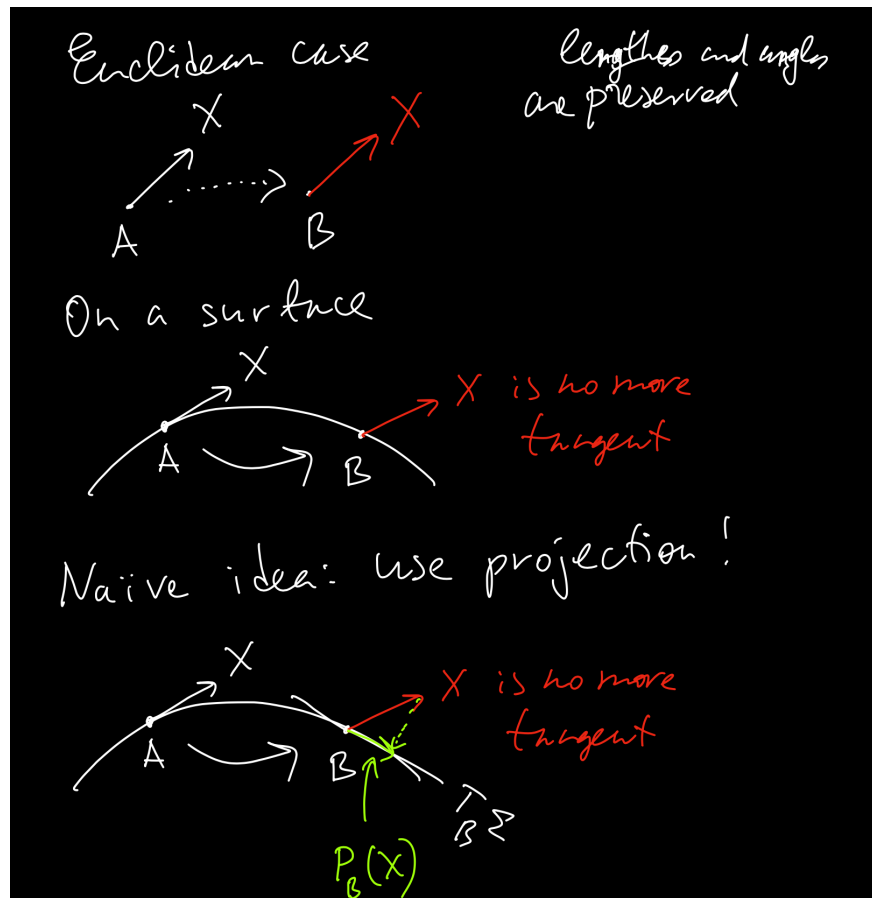 Euclidean case
lengthes and angles
are preserved
X
X
A
B
On a surface
X
X is no more
tangent
A
B
Naïve idea: use projection!
X
X is no more
tangent
A
B
T_BΣ
P_B(X)